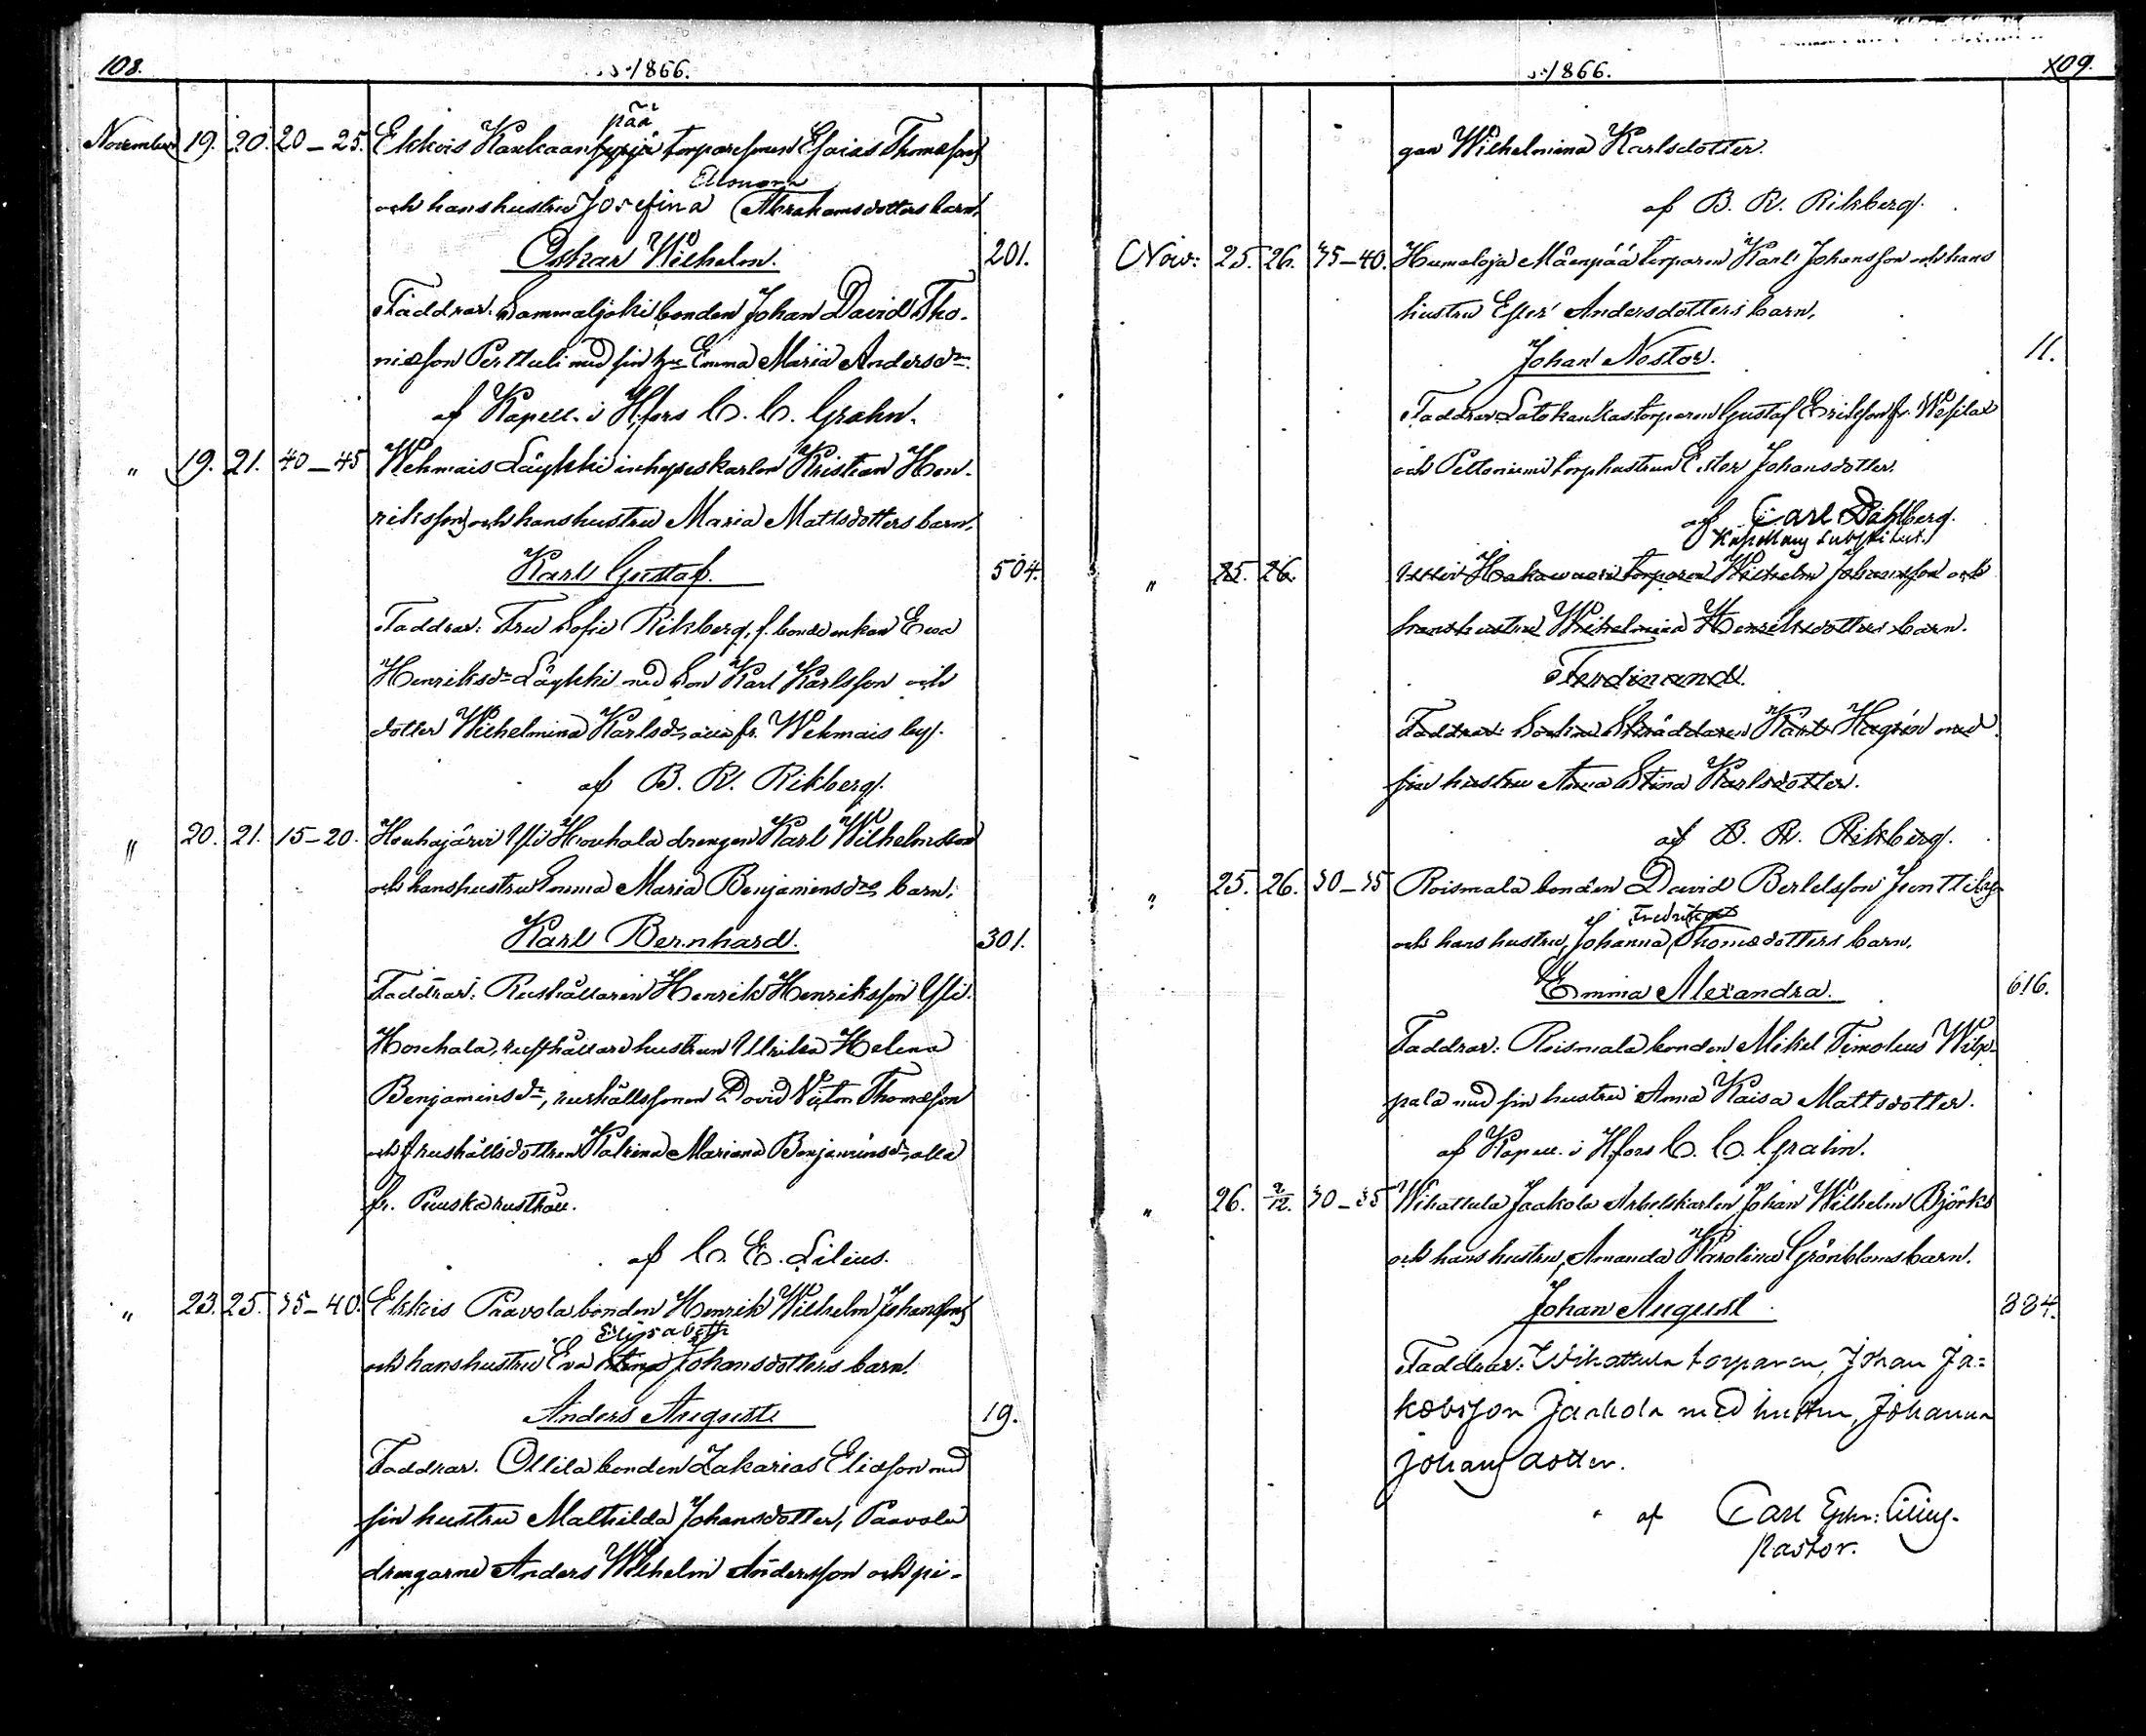 108.
1866.
November 19. 20. 20–25. Ekkois Kaukaan pää torparsonen Esaias Thomasson
och hans hustru Josefina Eleonora Abrahamsdotters barn,
Oskar Wilhelm. 201.
Faddrar: Sammaljoki bonden Johan David Tho-
masson Perttuli med sin h:u Emma Maria Andersd:r
af Kapell. i H:fors C. C. Grahn.
" 19. 21. 40–45 Wehmais Läykki inhyseskarlen Kristian Hen-
riksson och hans hustru Maria Mattsdotters barn,
Karl Gustaf. 504.
Faddrar: Fru Sofie Rikberg, f. bondeenkan Eva
Henriksd:r Läykki med Son Karl Karlsson och
dotter Wilhelmina Karlsd:r alla fr. Wehmais by.
af B. R. Rikberg.
" 20. 21. 15–20. Houhajärvi Yli Houhala drengen Karl Wilhelmsson
och hans hustru Emma Maria Benjaminsd:rs barn,
Karl Bernhard. 301.
Faddrar: Rusthållaren Henrik Henriksson Yli
Houhala, rusthållare hustrun Ulrika Helena
Benjaminsd:r, rusthållssonen David Victor Thomasson
och rusthållsdottren Katrina Mariana Benjaminsd:r alla
fr. Punska rusthåll.
af C. E. Lilius.
" 23. 25. 35–40. Ekkis Paavola bonden Henrik Wilhelm Johansson
och hans hustru Eva Stina Elisabeth Johansdotters barn.
Anders August 19.
Faddrar. Ollila bonden Zakarias Eliasson med
sin hustru Mathilda Johansdotter, Paavola
drengarne Anders Wilhelm Andersson och pi-
1866.
109.
gan Wilhelmina Karlsdotter.
af B. R. Rikberg.
Nov: 25. 26. 35–40. Humaloja Mäenpää torparen Karl Johansson och hans
hustru Ester Andersdotters barn,
Johan Nestor. 11.
Faddrar Latokankas torparen Gustaf Eriksson fr. Wesilax
och Peltoniemi torphustrun Ester Johansdotter.
af Carl Dahlberg.
Kapellans Substitut.
" 25. 26. Hakamaari torparen Wilhelm Johansson och
hans hustru Wilhelmina Henriksdotters barn.
Ferdinand.
Faddrar: Socken Skräddaren Karl Hegrén med
sin hustru Anna Stina Karlsdotter.
af B. R. Rikberg.
" 25. 26. 30–35 Roismala bonden David Bertelsson Junttila
och hans hustru, Johanna Fredrika Thomasdotters barn,
Emma Alexandra. 616.
Faddrar: Roismala bonden Mikel Timoteus Wilp-
pala med sin hustru Anna Kaisa Mattsdotter.
af Kapell. i H:fors C. C. Grahn.
" 26. 2/12. 30–35 Wihattula Jaakola Arbetskarlen Johan Wilhelm Björks
och hans hustru, Amanda Karolina Grönbloms barn.
Johan August. 884.
Faddrar: Wihattula torparen, Johan Ja-
kobsson Jaakola med hustru, Johanna
Johansdotter.
af Carl Ephr: Lilius.
Pastor.